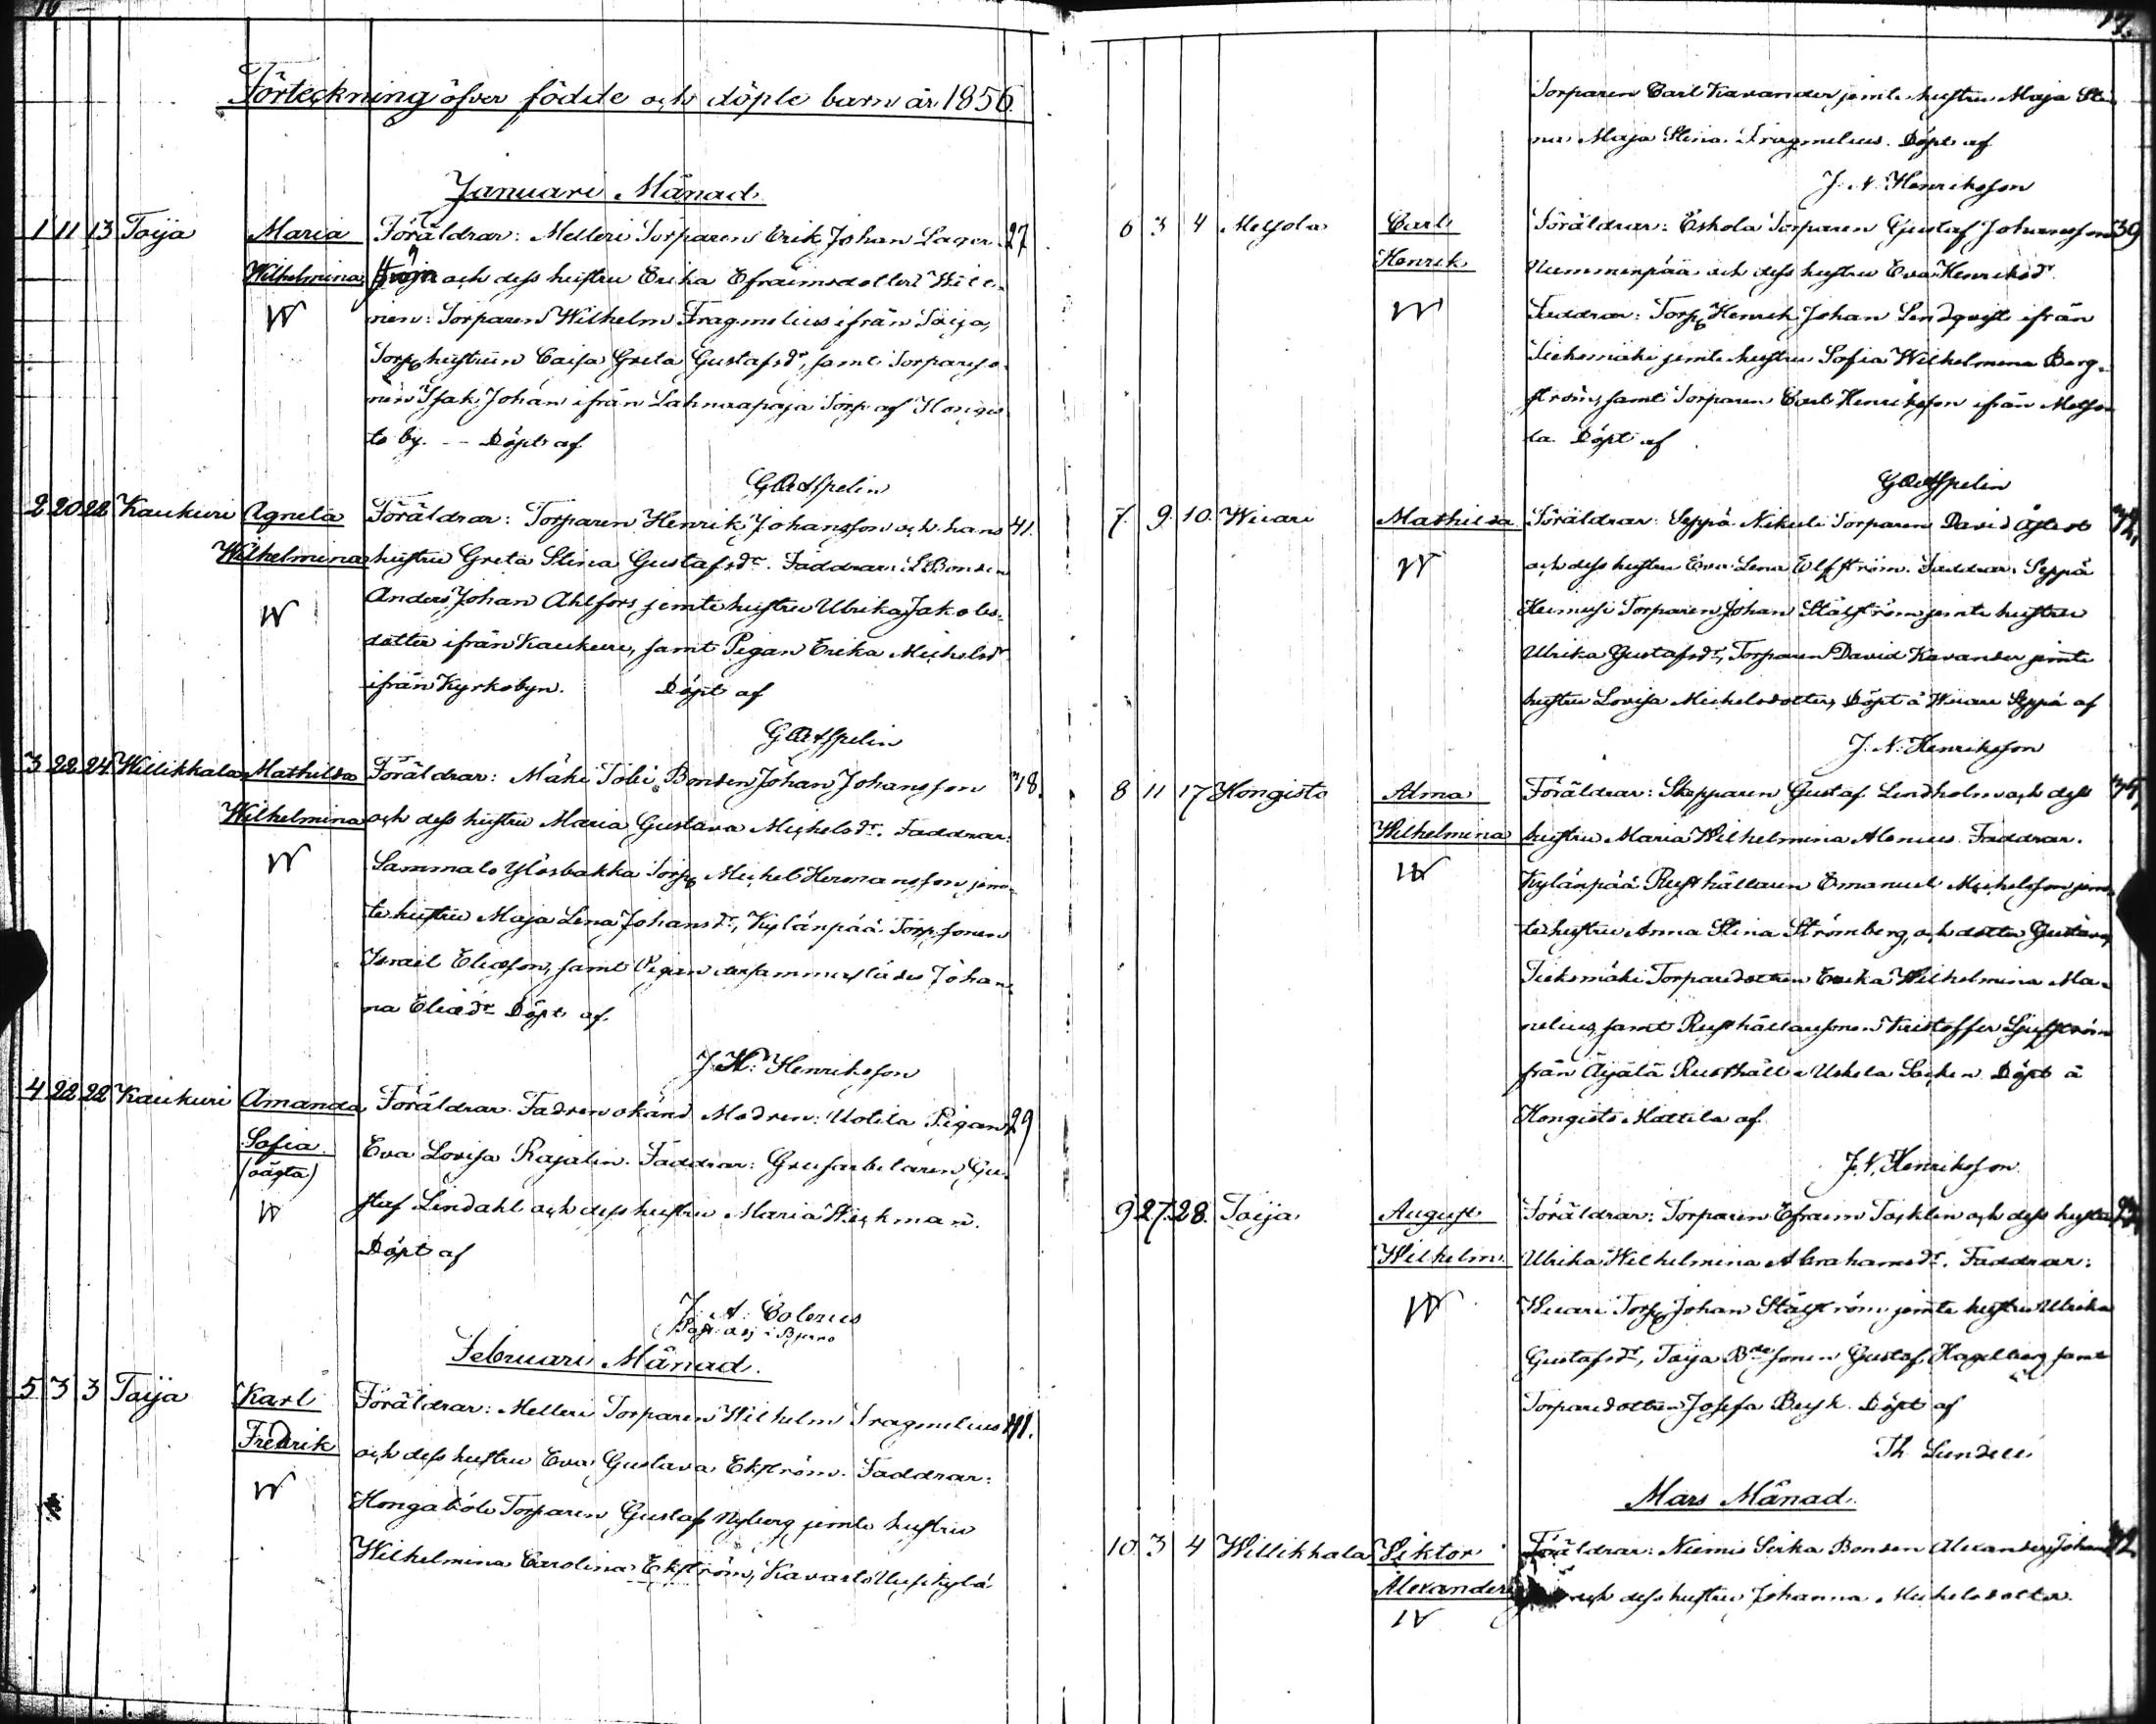 16
Förteckning öfver födde och döpte barn år 1856.
Januari Månad.
1 11 13 Toija Maria Föräldrar: Melleri Torparen Erik Johan Lager- 27
Wilhelmina och dess hustru Erika Efraimsdotter
W Torparen Wilhelm Fragmelius ifrån Toija,
Torp hustrun Caisa Greta Gustafsdr, samt Torpareso-
nen Isak Johan ifrån Lahnaapaja Torp af Kongis-
to by. -- Döpt af
2 20 22 Kaukuri Agneta Föräldrar: Torparen Henrik Johansson och hans 41.
Wilhelmina hustru Greta Stina Gustafsdr. Faddrar: Bonden
W Anders Johan Ahlfors jemte hustru Ulrika Jakobs-
dotter ifrån Kaukuri, samt Pigan Erika Michelsdr
ifrån Kyrkobyn. Döpt af
3 22 24 Willikkala Mathilda Föräldrar: Mäki Tobi Bonden Johan Johansson 18.
Wilhelmina och dess hustru Maria Gustava Michelsdr. Faddrar:
W Sammalo Torp Michel Hermansson jem-
te hustru Maja Lena Johansdr, Kylänpää Torp. sonen
Israel Eliasson, samt Pigan dersammastädes Johan-
na Eliædr Döpt af
Henriksson
4 22 22 Kaukuri Amanda Föräldrar. Fadren okänd Modren: Uotila Pigan 29
Sofia Eva Lovisa Rajalin. Faddrar: Grufarbetaren Gu-
(oägta) staf Lindahl och dess hustru Maria Wickman.
W Döpt af
J. A. Colerus
Februari Månad.
5 3 3 Toija Karl Föräldrar: Melleri Torparen Wilhelm Fragmelius 41.
Fredrik och dess hustru Eva Gustava Ekström. Faddrar:
W Hongaböle Torparen Gustaf Nyberg jemte hustru
Wilhelmina Carolina Ekström, Kavasto Uusikylä
17.
Torparen Carl Kavander jemte hustru Maja Sti-
na Maja Stina Fragmelius. Döpt af
J. N. Henriksson
6 3 4 Metsola Carl Föräldrar: Eskola Torparen Gustaf Johansson 39
Henrik Nummenpää och dess hustru Eva Henriksdr.
W Faddrar: Torp Henrik Johan Lindqvist ifrån
Tiiksmäki jemte hustru Sofia Wilhelmina Berg-
ström, samt Torparen Carl Henriksson ifrån Metso-
la. Döpt af
7. 9. 10. Wiiari Mathilda Föräldrar: Seppä Nikuli Torparen David
W och dess hustru Eva Lena Elfström. Faddrar: Seppä
Torparen Johan Stålström jemte hustru
Ulrika Gustafsdr, Torparen David Kavander jemte
hustru Lovisa Michelsdotter, Döpt å Wiiari Seppä af
J. N. Henriksson
8 11 17 Kongisto Alma Föräldrar: Skepparen Gustaf Lindholm och dess
Wilhelmina hustru Maria Wilhelmina Alenius. Faddrar.
W Kylänpää Rusthållaren Emanuel Michelsson jem-
te hustru Anna Stina Strömberg, och dotter Gustava,
Tiiksmäki Torparedottren Erika Wilhelmina Ma-
nelius, samt Rusthållaresonen Kristoffer
från Äijälä Rusthåll i Uskela Socken. Döpt å
Kongisto Mattila af
J. N. Henriksson
9 27. 28. Toija August Föräldrar: Torparen Efraim och dess hustru
Wilhelm Ulrika Wilhelmina Abrahamsdr. Faddrar:
W Wiiari Torp Johan Stålström jemte hustru Ulrika
Gustafsdr, Toija Bde sonen Gustaf Hagelberg samt
Torparedottren Josefa Döpt af
Th. Lundell
Mars Månad.
10 3 4 Willikkala Viktor Föräldrar: Niemis Bonden Alexander Johans-
Alexander och dess hustru Johanna Michelsdotter.
W